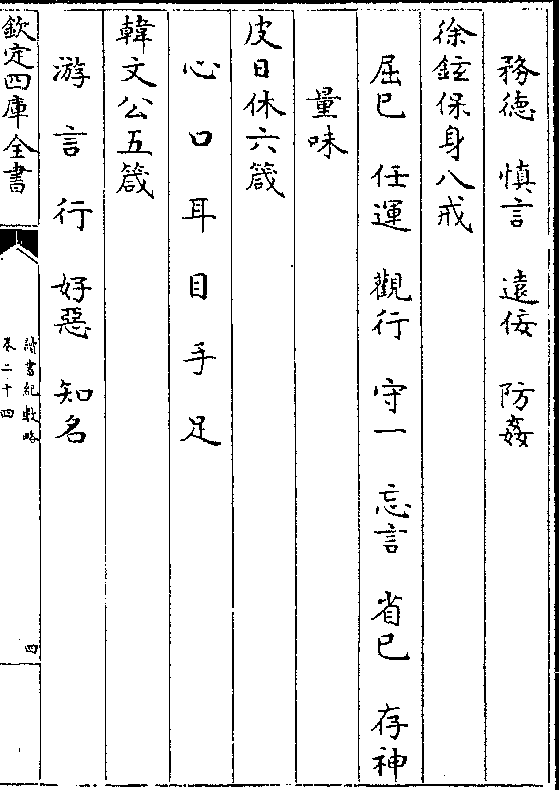 務德 慎言 遠佞 防姦
徐鉉保身八戒
屈已 任運 觀行 守一 忘言 省已 存神
量味
皮日休六箴
心 口 耳 目 手 足
韓文公五箴
游 言 行 好惡 知名
欽定四庫全書
讀書紀數略
卷二十四
四